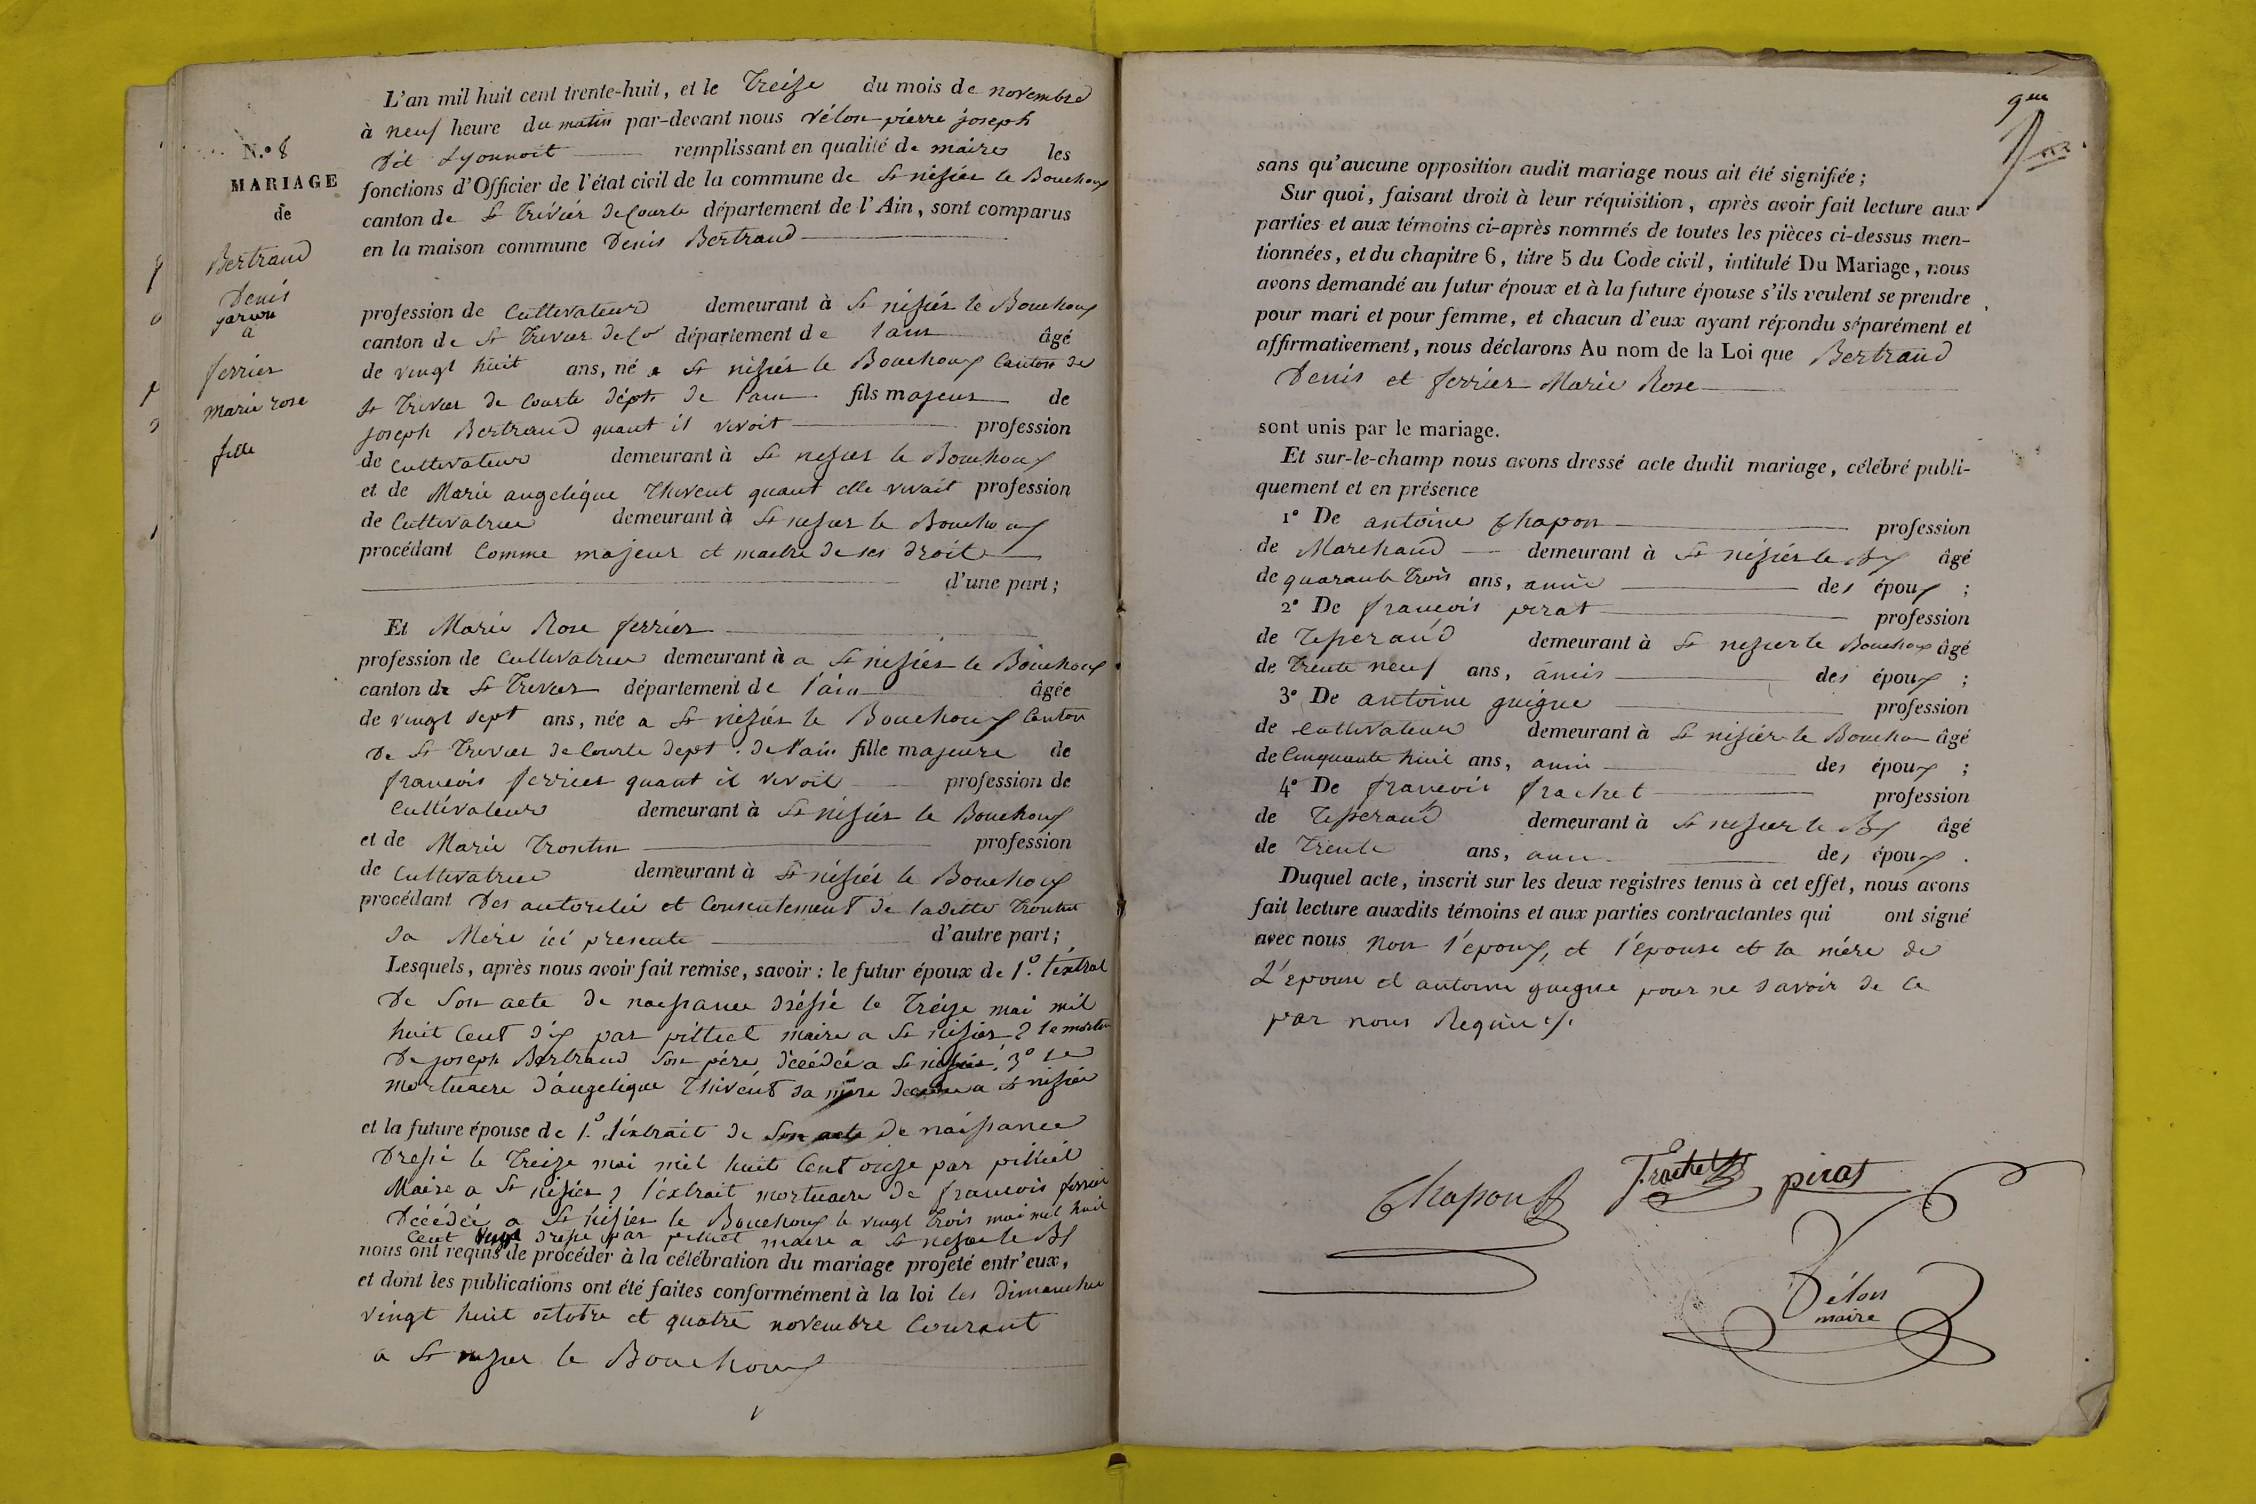 N.º 8
MARIAGE
de
Bertrand
Denis
garcon
a
ferrier
Marie rose
fille
L'an mil huit cent trente-huit, et le Treize du mois de novembre
à neuf heure du matin par-devant nous vélon pierre joseph
dit Lyonnoit remplissant en qualité de maire les
fonctions d'Officier de l'état civil de la commune de St nisier le Bouchoux
canton de St Trivier de Courte département de l'Ain, sont comparus
en la maison commune Denis Bertrand
profession de Cultivateur demeurant à St nisiér le Bouchoux
canton de St Trivier de Co département de l'ain âgé
de vingt huit ans, né a St nisiér le Bouchoux Canton de
St Trivier de Courte dépt de l'ain fils majeur de
joseph Bertrand quant il vivoit profession
de Cultivateur demeurant à St nisier le Bouchoux
et de Marie angelique Thivent quant elle vivait profession
de Cultivatrice demeurant à St nisier le Bouchoux
procédant Comme majeur et maitre de ses droit
d'une part;
Et Marie Rose ferrier
profession de Cultivatrice demeurant à a St nisiér le Bouchoux
canton de St Trivier département de l'ain âgée
de vingt sept ans, née a St nisiér le Bouchoux Canton
De St Trivier de Courte dept. de l'ain fille majeure de
francois ferrier quant il vivoit profession de
Cultivateur demeurant à St nisiér le Bouchoux
et de Marie Trontin profession
de Cultivatrice demeurant à St nisiér le Bouchoux
procédant Des et Consentement de laditte Trontin
sa Mére ici presente d'autre part;
Lesquels, après nous avoir fait remise, savoir: le futur époux de 1.º l'extrat
De Son acte de naissance dréssé le Treize mai mil
huit Cent dix par pilliet maire a St nisier 2
De joseph Bertrand Son pére, décédé a St nisier 3º
Mortuaere d'angelique Thivént sa mére a St nisier
et la future épouse de 1.º l'éxtrait de Son acte de naissance
Dressé le Treize mai mil huit Cent onze par pilliet
Maire a St nisier 2 l'éxtrait mortuaere de francois ferrier
Décédé a St nisier le Bouchoux le vingt Trois mai mil huit
Cent dressé par pilliet maire a St nisier le Bx
nous ont requis de procéder à la célébration du mariage projeté entr'eux,
et dont les publications ont été faites conformément à la loi les dimanches
vingt huit octobre et quatre novembre Courant
a St nisier le Bouchoux
9me
sans qu'aucune opposition audit mariage nous ait été signifiée;
Sur quoi, faisant droit à leur réquisition, après avoir fait lecture aux
parties et aux témoins ci-après nommés de toutes les pièces ci-dessus men-
tionnées, et du chapitre 6, titre 5 du Code civil, intitulé Du Mariage, nous
avons demandé au futur époux et à la future épouse s'ils veulent se prendre
pour mari et pour femme, et chacun d'eux ayant répondu séparément et
affirmativement, nous déclarons Au nom de la Loi que Bertrand
Denis et ferrier Marie Rose
sont unis par le mariage.
Et sur-le-champ nous avons dressé acte dudit mariage, célébré publi-
quement et en présence
1º De antoine Chapon profession
de Marchand demeurant à St nisiér le Bx âgé
de quarante Trois ans, amie des époux;
2º De francois pirat profession
de Tisserand demeurant à St nisier le Bouchoux âgé
de Trente neuf ans, amis des époux;
3º De antoine guigue profession
de Cultivateur demeurant à St nisiér le Bouchou âgé
de Cinquante huit ans, amie des époux;
4º De francois frachet profession
de Tisserand demeurant à St nisier le Bx âgé
de Trente ans, ami des époux.
Duquel acte, inscrit sur les deux registres tenus à cet effet, nous avons
fait lecture auxdits témoins et aux parties contractantes qui ont signé
avec nous Non l'époux, et l'épouse et la mére de
L'epouse et antoine guigue pour ne savoir de ce
par nous Requis.
Chapon
frachet
piras
Vélon
maire